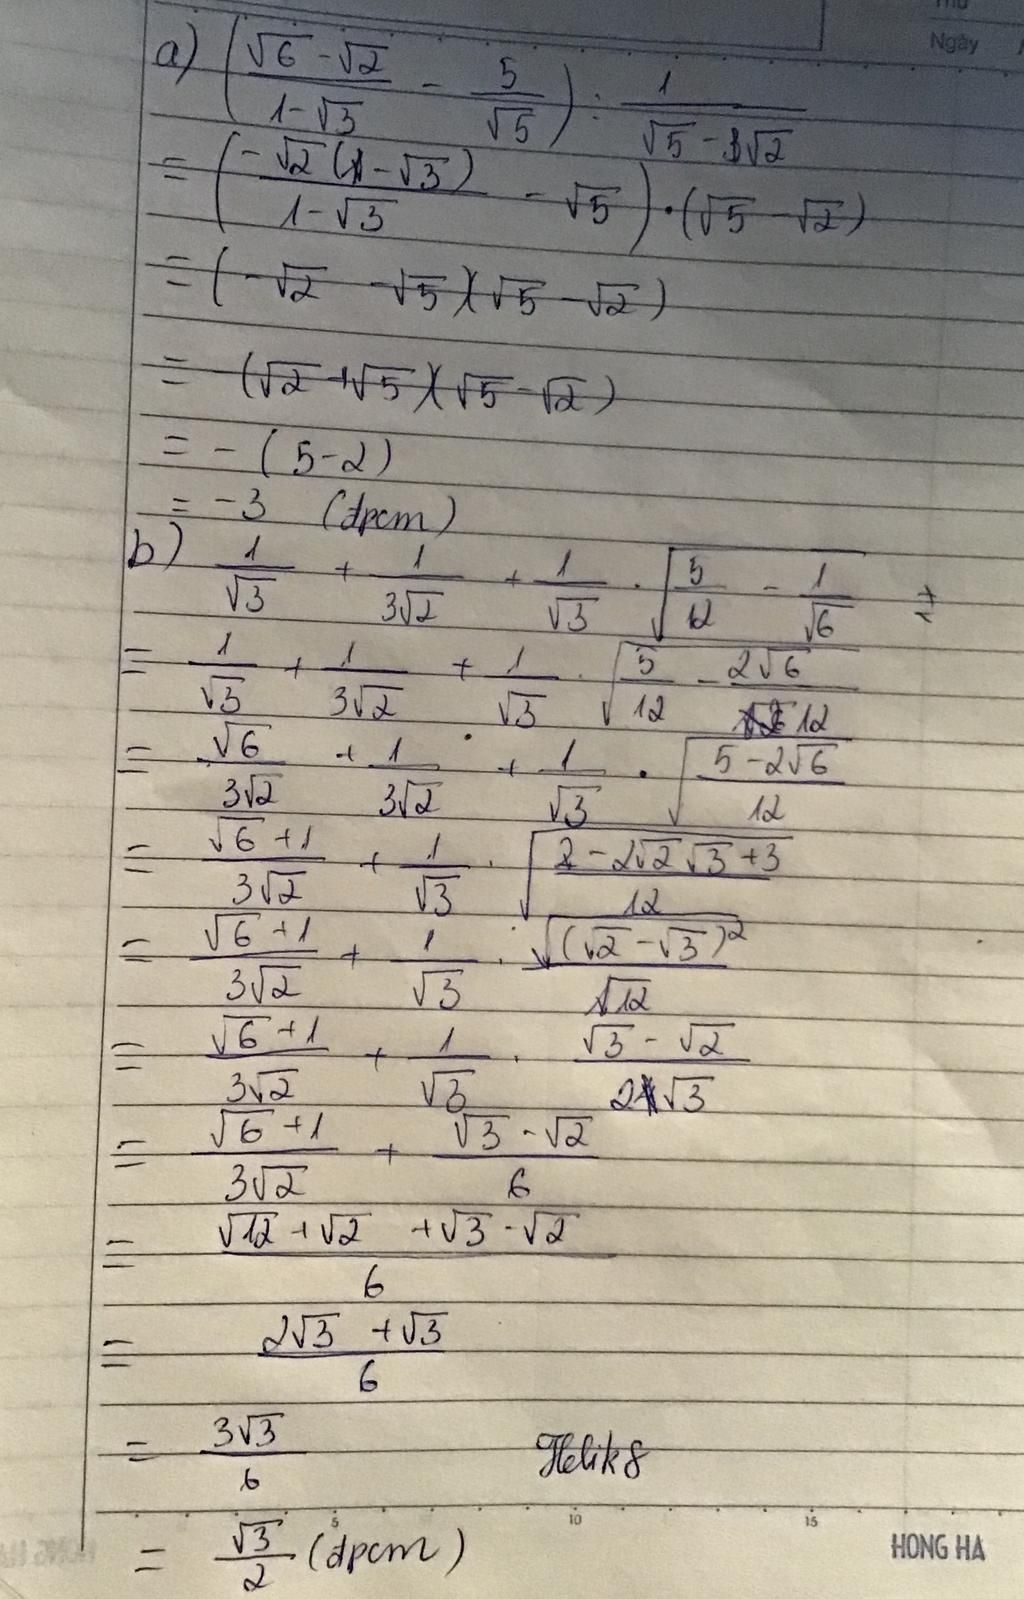 Thứ
Ngày
a) ( (√6 - √2)/(1 - √3) - 5/√5 ) : 1/(√5 - √2)
= ( -√2(1 - √3)/(1 - √3) - √5 ) . (√5 - √2)
= (-√2 - √5)(√5 - √2)
= -(√2 + √5)(√5 - √2)
= - (5 - 2)
= -3 (dpcm)
b) 1/√3 + 1/(3√2) + 1/√3 . √(5/12 - 1/√6)
= 1/√3 + 1/(3√2) + 1/√3 . √(5/12 - 2√6/12)
= √6/(3√2) + 1/(3√2) + 1/√3 . √((5 - 2√6)/12)
= (√6 + 1)/(3√2) + 1/√3 . √((2 - 2√2√3 + 3)/12)
= (√6 + 1)/(3√2) + 1/√3 . √((√2 - √3)²)/√12
= (√6 + 1)/(3√2) + 1/√3 . (√3 - √2)/(2√3)
= (√6 + 1)/(3√2) + (√3 - √2)/6
= (√12 + √2 + √3 - √2)/6
= (2√3 + √3)/6
= 3√3/6 Helik8
5 10 15
= √3/2 (dpcm) HONG HA